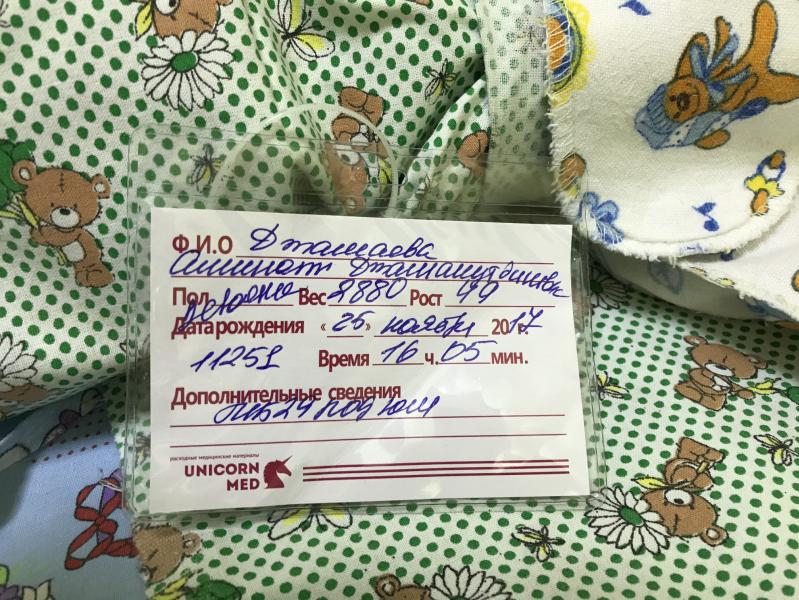 Ф.И.О Джамаева
Аминат Джамалутдиновн
Пол Вес 2880 Рост 49
Дата рождения «26» ноября 2017 г.
11251 Время 16 ч. 05 мин.
Дополнительные сведения
расходные медицинские материалы
UNICORN
MED